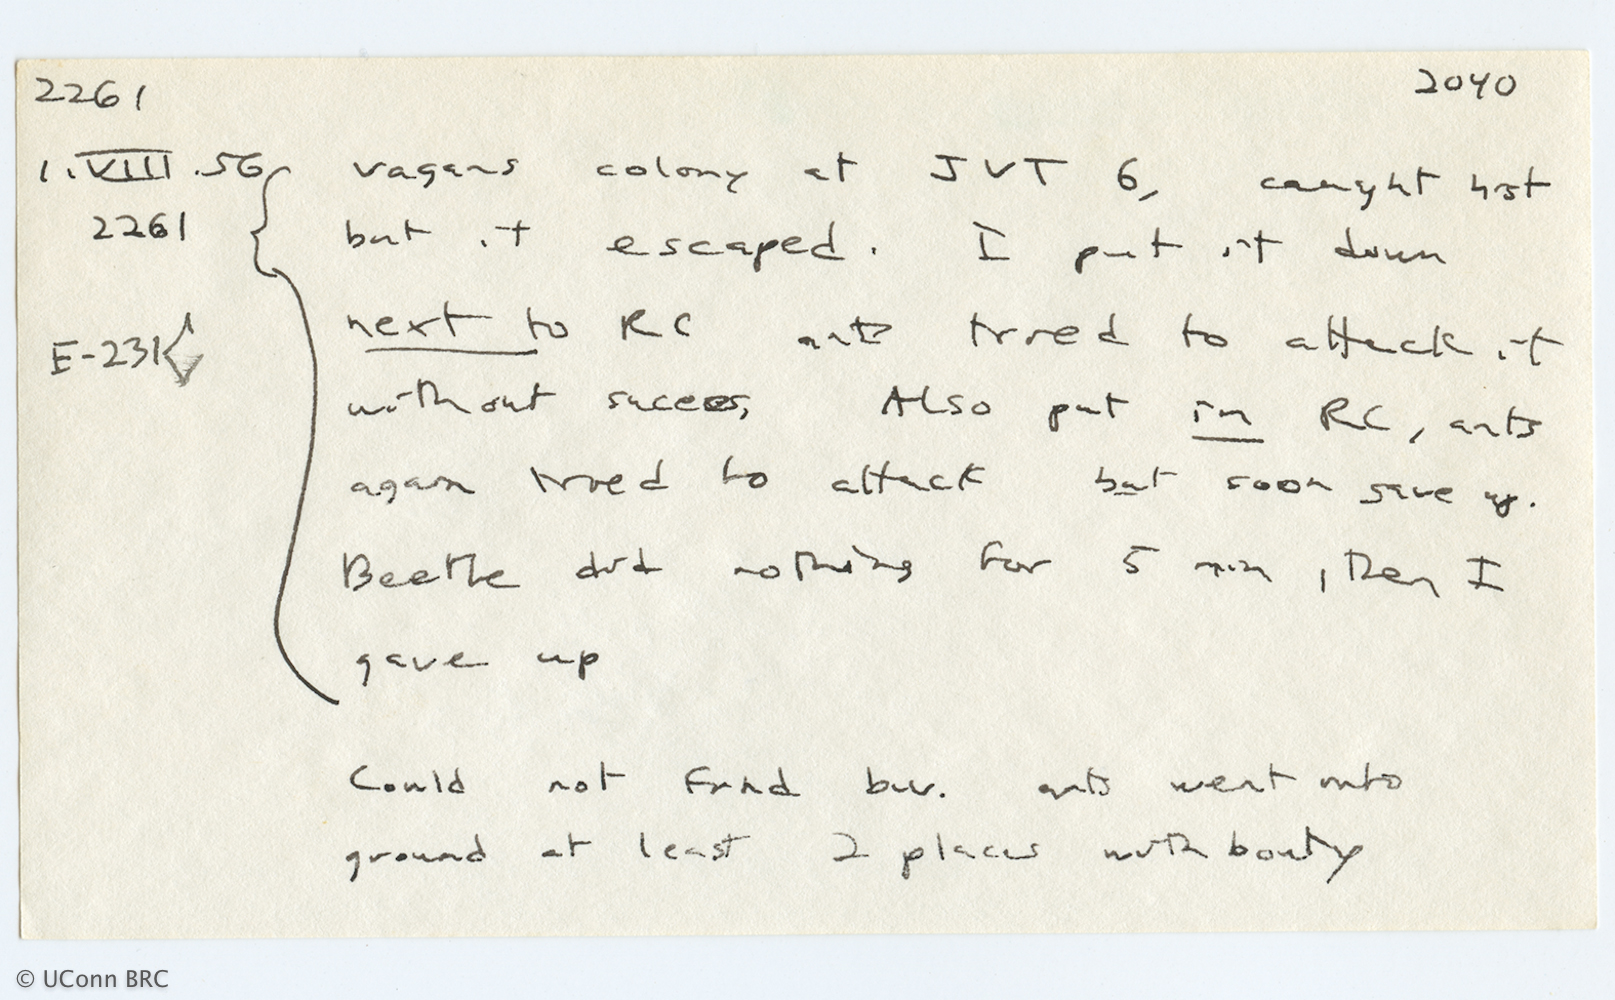 2261 2040
1.VIII.56 vagans colony at JVT 6, caught hist
2261 but it escaped. I put it down
next to RC ants tried to attack it
E-231
without success, Also put in RC, ants
again tried to attack but soon gave up.
Beetle did nothing for 5 min, then I
gave up
Could not find biv. ants went into
ground at least 2 places with booty
© UConn BRC